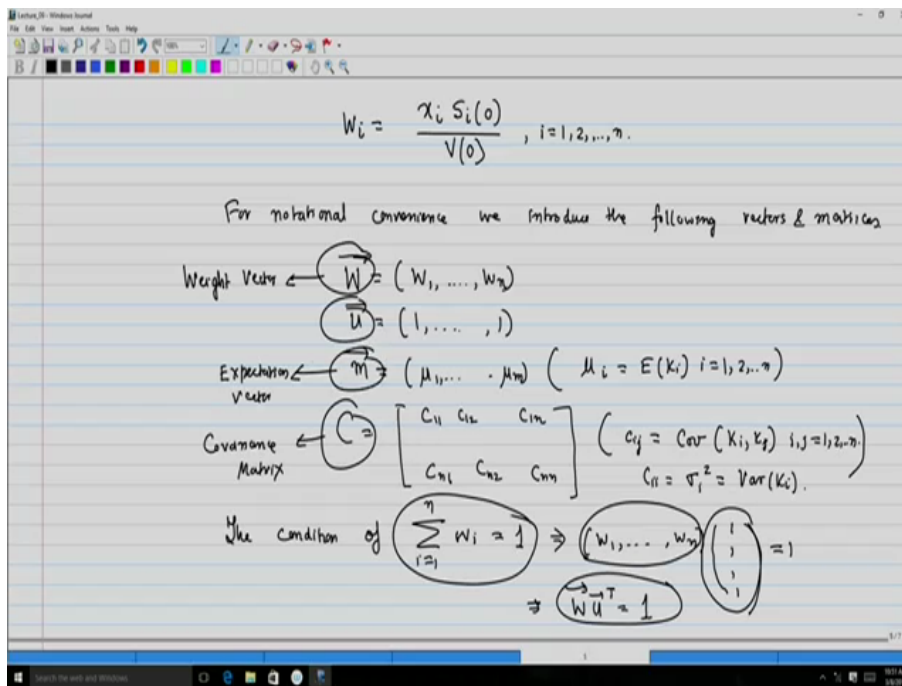 Lecture_09 - Windows Journal
File Edit View Insert Actions Tools Help
B I
W_i = x_i S_i(0) / V(0) , i=1,2,...,n.
For notational convenience we introduce the following vectors & matrices
Weight Vector ← W⃗ = (W_1, ...., W_n)
u⃗ = (1, .... , 1)
Expectation Vector ← m⃗ = (μ_1, ... . μ_n) ( μ_i = E(K_i) i=1,2,..n)
Covariance Matrix ← C = [ C_11 C_12 C_1n
C_n1 C_n2 C_nn ] ( c_ij = Cov (K_i, K_j) i,j=1,2,..n.
C_ii = σ_i^2 = Var(K_i). )
The condition of n∑i=1 w_i = 1 ⇒ (w_1, ..., w_n) ( 1 , , 1 ) = 1
⇒ W⃗ u⃗^T = 1
Search the web and Windows